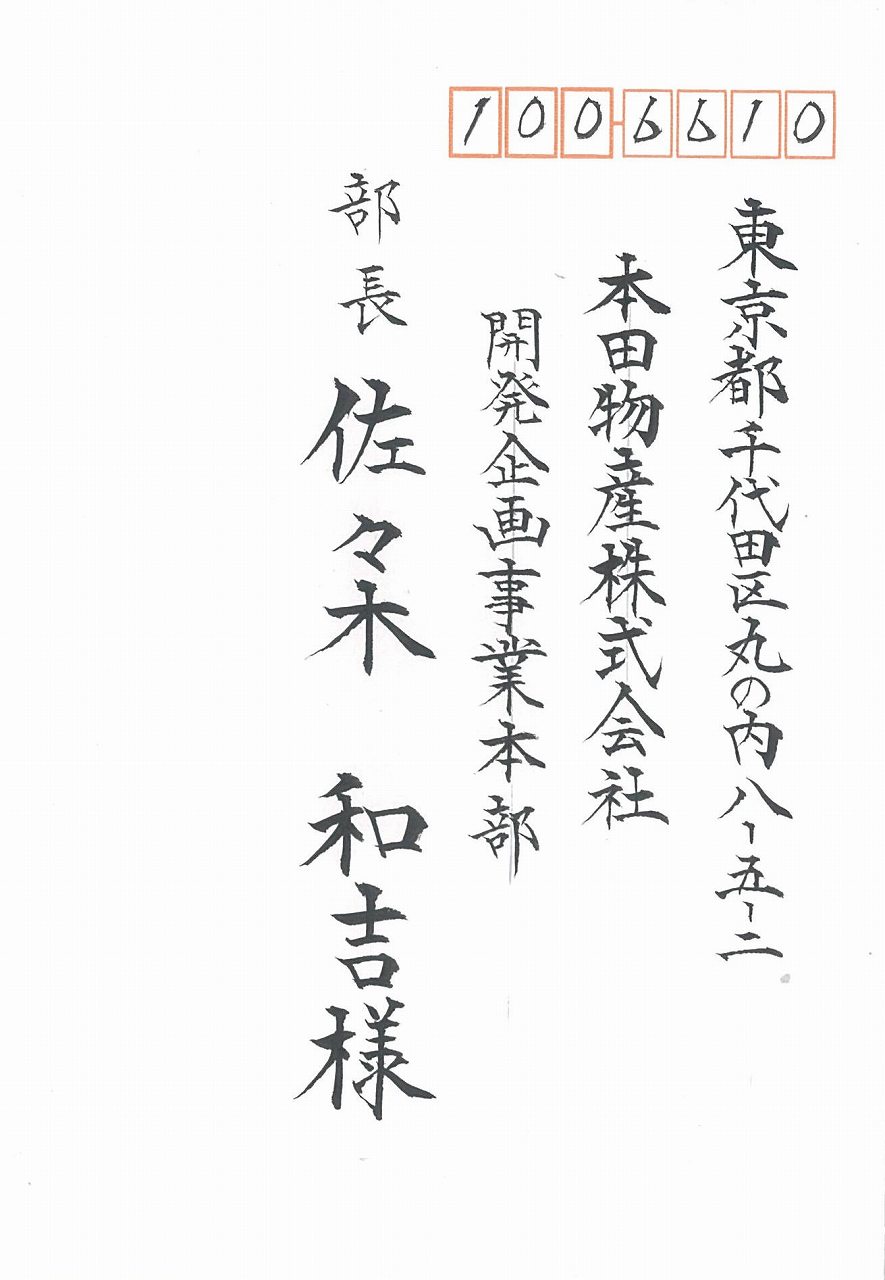 100-6610
東京都千代田区丸の内八-五-二
本田物産株式会社
開発企画事業本部
部長 佐々木 和吉様